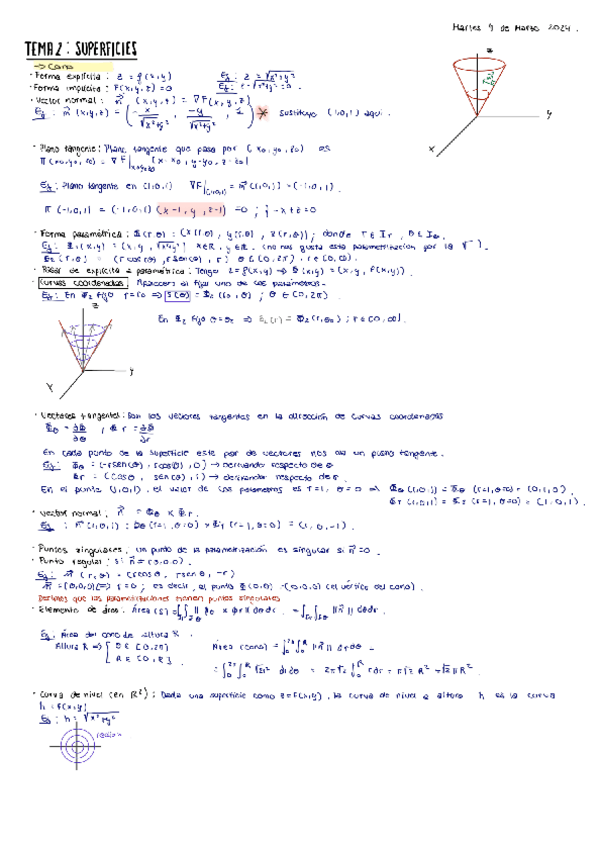 Martes 9 de Marzo 2024.
TEMA 2: SUPERFICIES
→ Cono
· Forma explícita: z = f(x,y) Ej: z = √x²+y²
· Forma implícita: F(x,y,z) = 0 Ej: z - √x²+y² = 0
· Vector normal: n⃗ (x,y,z) = ∇F(x,y,z)
Ej: n⃗ (x,y,z) = (-x/√x²+y², -y/√x²+y², 1) * sustituyo (1,0,1) aquí.
z
y
x
· Plano tangente: Plano tangente que pasa por (x0,y0,z0) es
π(x0,y0,z0) = ∇F|x0,y0,z0 (x-x0, y-y0, z-z0)
Ej: Plano tangente en (1,0,1) ∇F|(1,0,1) = n⃗(1,0,1) = (-1,0,1).
π(-1,0,1) = (-1,0,1)(x-1, y, z-1) = 0; -x+z=0
· Forma paramétrica: Φ(r,θ) = (x(r,θ), y(r,θ), z(r,θ)); donde r∈Ir, θ∈Iθ.
Ej: Φ1(x,y) = (x,y,√x²+y²) x∈R, y∈R. (no nos gusta esta parametrización por la √ ).
Φ2(r,θ) = (r cosθ, r sen(θ), r); θ∈[0,2π), r∈[0,∞).
· Pasar de explícita a paramétrica: Tengo z=f(x,y) → Φ(x,y) = (x,y,f(x,y)).
· Curvas coordenadas: Aparecen al fijar uno de los parámetros.
Ej: En Φ2 fijo r=r0 ⇒ S(θ) = Φ2(r0,θ); θ∈[0,2π).
En Φ2 fijo θ=θ0 ⇒ (r) = Φ2(r,θ0); r∈[0,∞).
z
y
x
· Vectores tangentes: Son los vectores tangentes en la dirección de curvas coordenadas
Φθ = ∂Φ/∂θ, Φr = ∂Φ/∂r
En cada punto de la superficie este par de vectores nos da un plano tangente.
Ej: Φθ = (-r sen(θ), r cos(θ), 0) → derivando respecto de θ
Φr = (cosθ, sen(θ), 1) → derivando respecto de r.
En el punto (1,0,1), el valor de los parámetros es r=1, θ=0 ⇒ Φθ(1,0,1) = Φθ(r=1,θ=0) = (0,1,0).
Φr(1,0,1) = Φr(r=1,θ=0) = (1,0,1).
· Vector normal: n⃗ = Φθ × Φr
Ej: n⃗(1,0,1): Φθ(r=1,θ=0) × Φr(r=1,θ=0) = (1,0,-1).
· Puntos singulares: un punto de la parametrización es singular si n⃗=0.
· Punto regular: si n⃗≠(0,0,0).
Ej: n⃗(r,θ) = (r cosθ, r senθ, -r)
n⃗=(0,0,0) ⇔ r=0; es decir, el punto Φ(0,θ) = (0,0,0) (el vértice del cono).
Decimos que las parametrizaciones tienen puntos singulares
· Elemento de área: Área(S) = ∫∫ ||Φθ × Φr|| dθdr = ∫∫ ||n⃗|| dθdr.
Ej: Área del cono de altura R.
Altura R ⇒ [θ∈[0,2π] R∈[0,R] Área(cono) = ∫₀²π ∫₀R ||n⃗|| dr dθ =
= ∫₀²π ∫₀R √2r² drdθ = 2π√2 ∫₀R r dr = π√2 R² = √2 π R².
· Curva de nivel (en R²): Dada una superficie como z=f(x,y), la curva de nivel a altura h es la curva
h=f(x,y)
Ej: h = √x²+y²